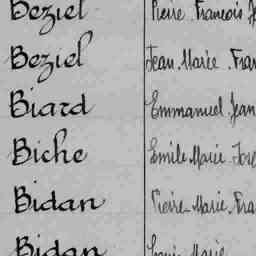 Beziel Pierre François Je
Beziel Jean Marie Fran
Biard Emmanuel Jean
Biche Emile Marie Jose
Bidan Pierre Marie Fra
Bidan Louis Marie